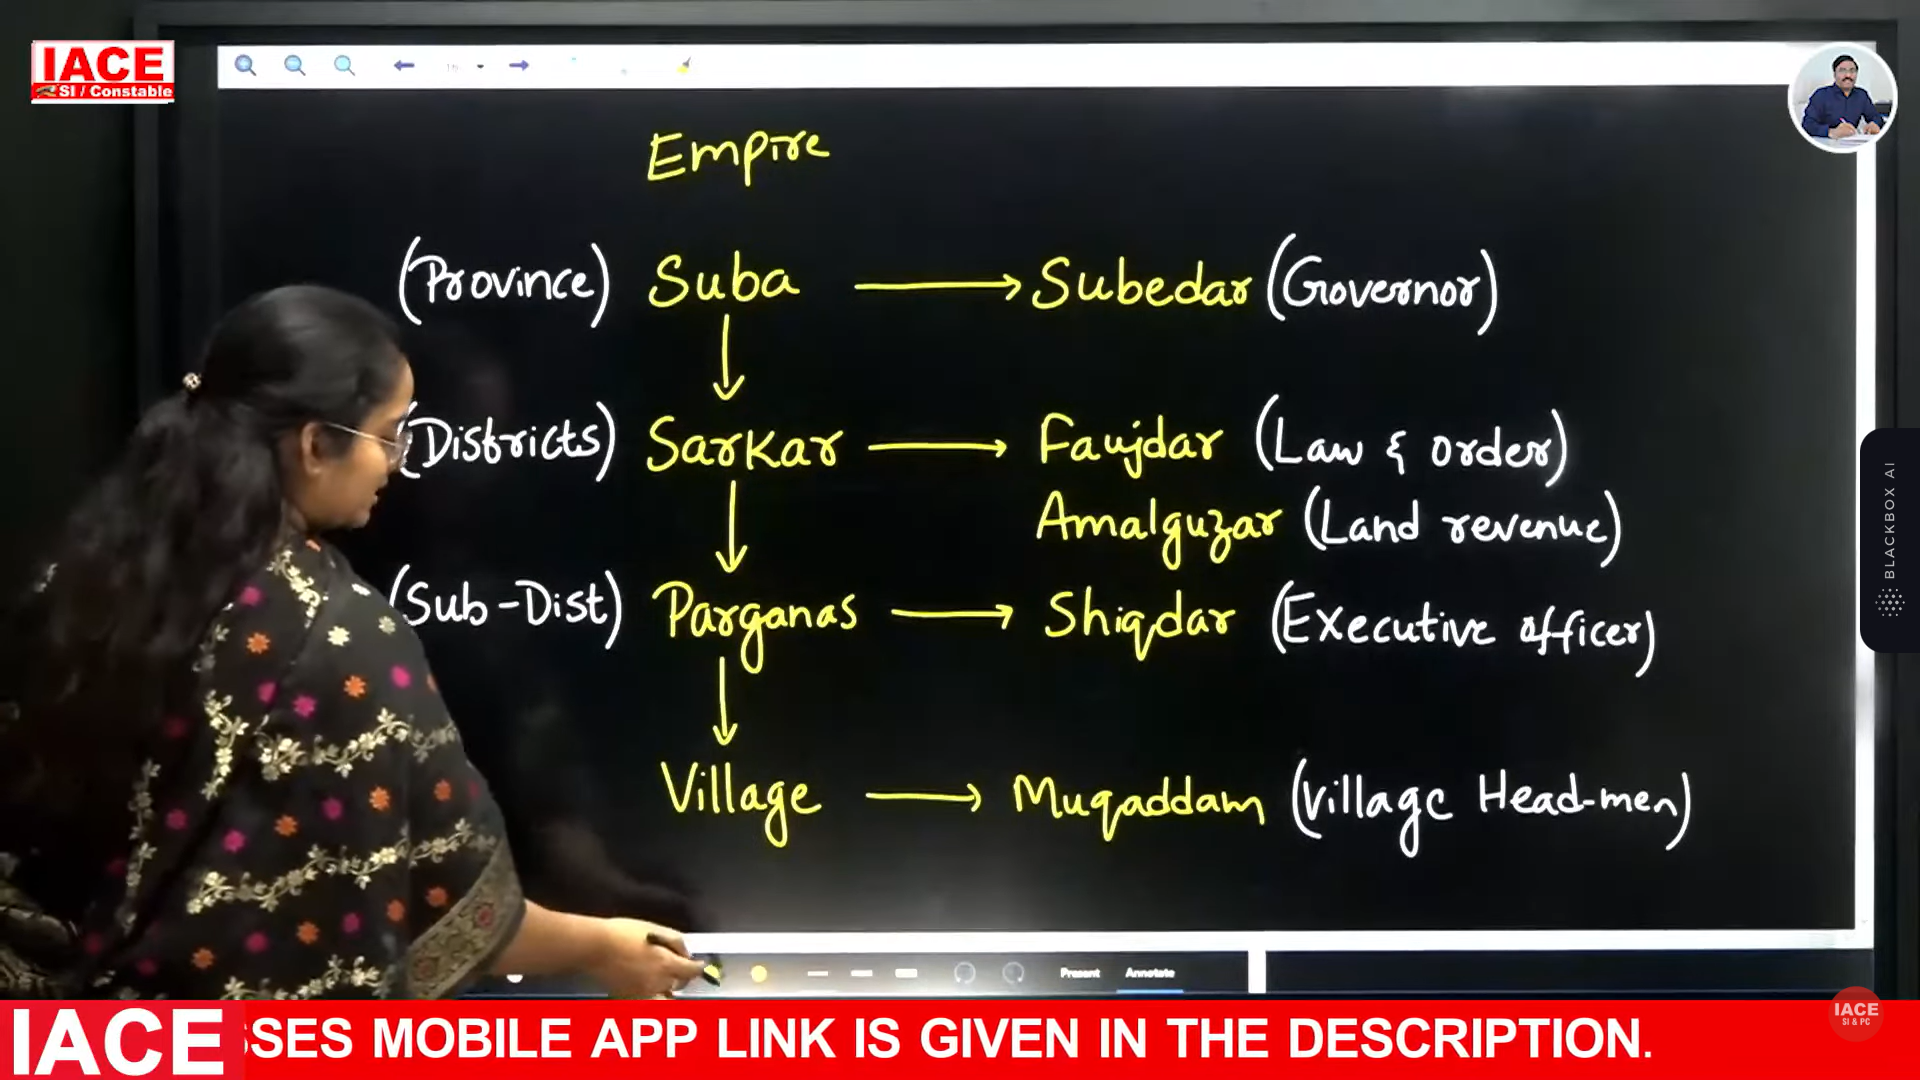 IACE
SI / Constable
Empire
(Province) Suba → Subedar (Governor)
(Districts) Sarkar → Faujdar (Law & order)
Amalguzar (Land revenue)
(Sub-Dist) Parganas → Shiqdar (Executive officer)
Village → Muqaddam (Village Head-men)
BLACKBOX AI
Present Annotate
IACE
SI & PC
IACE SSES MOBILE APP LINK IS GIVEN IN THE DESCRIPTION.